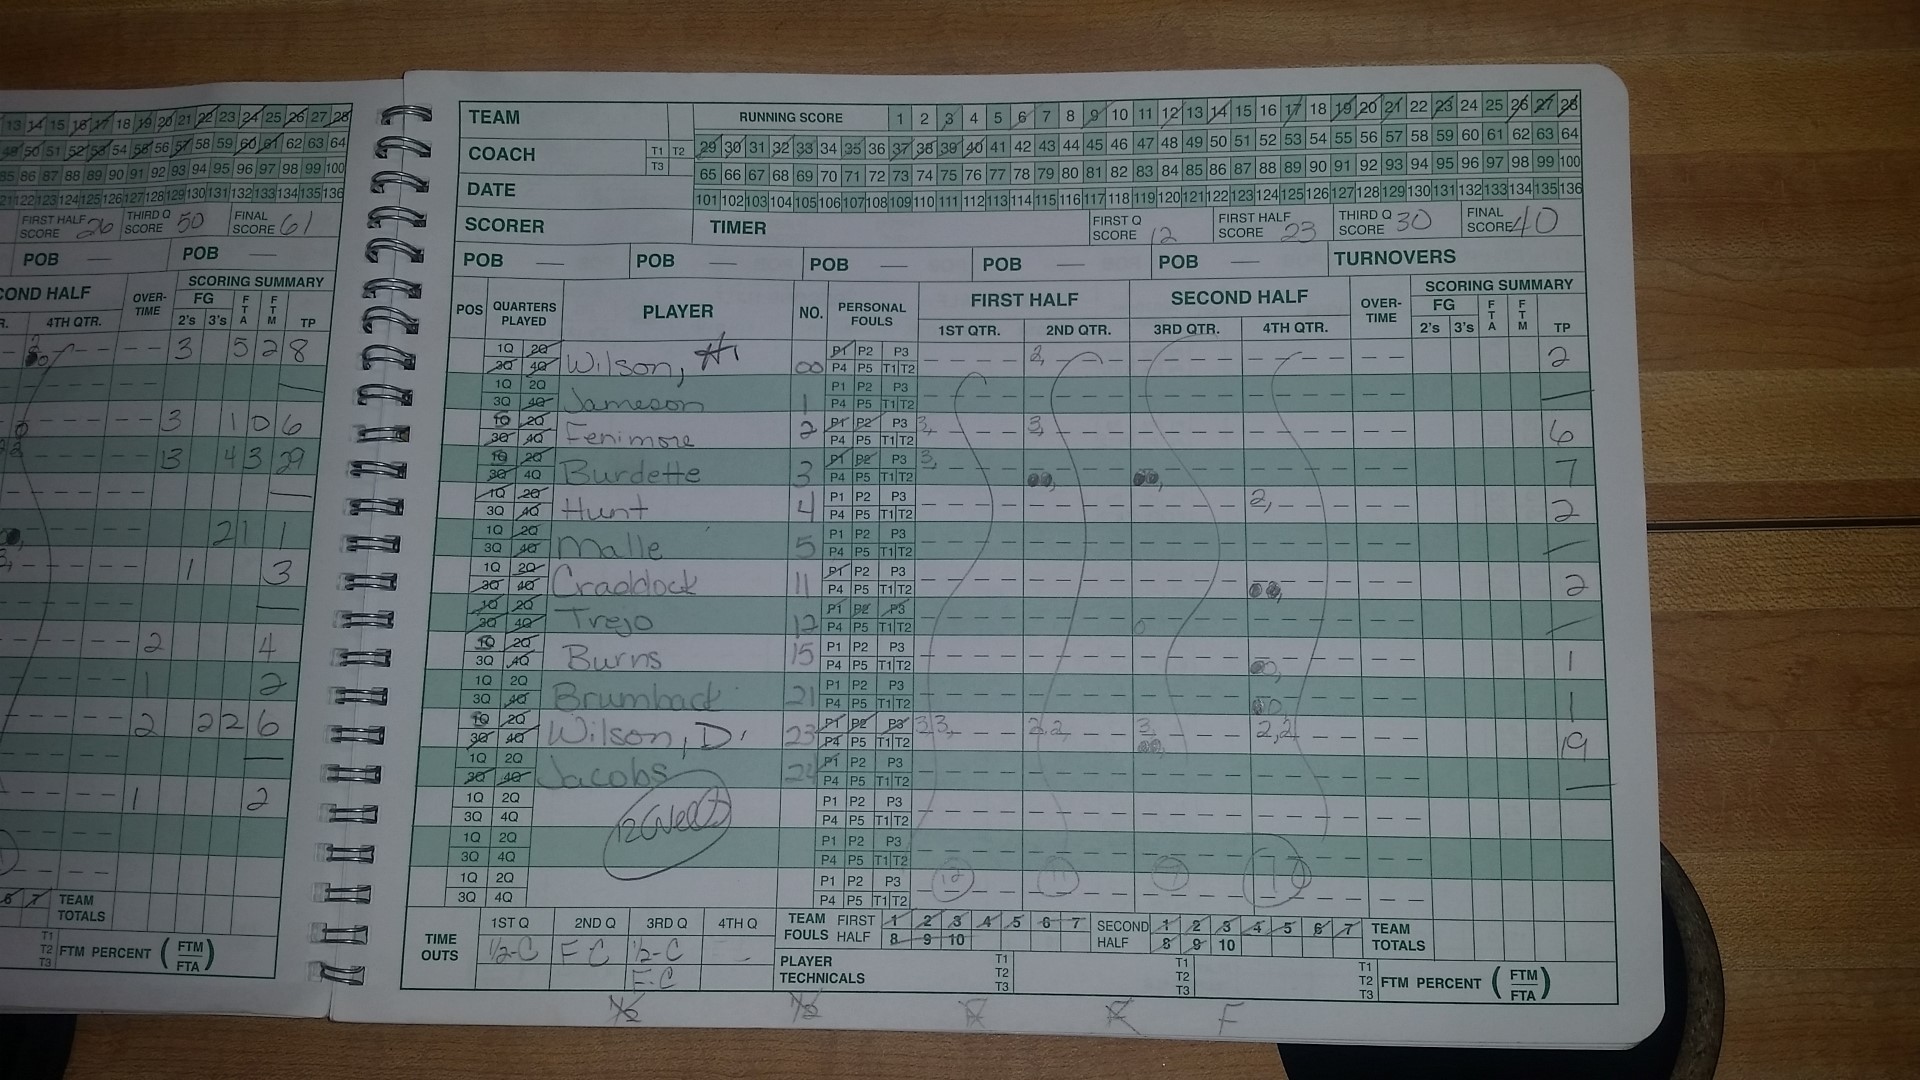 13 14 15 16 17 18 19 20 21 22 23 24 25 26 27 28
49 50 51 52 53 54 55 56 57 58 59 60 61 62 63 64
85 86 87 88 89 90 91 92 93 94 95 96 97 98 99 100
121 122 123 124 125 126 127 128 129 130 131 132 133 134 135 136
FIRST HALF SCORE 26 THIRD Q SCORE 50 FINAL SCORE 61
POB — POB —
COND HALF OVER-TIME SCORING SUMMARY
FG 2's 3's FTA FTM TP
R. 4TH QTR.
3 5 2 8
—
3 1 0 6
13 4 3 29
—
2 1 1
1 3
—
2 4
1 2
2 2 2 6
—
1 2
6 7 TEAM TOTALS
T1 T2 T3 FTM PERCENT (FTM/FTA)
TEAM RUNNING SCORE 1 2 3 4 5 6 7 8 9 10 11 12 13 14 15 16 17 18 19 20 21 22 23 24 25 26 27 28
COACH T1 T2 T3 29 30 31 32 33 34 35 36 37 38 39 40 41 42 43 44 45 46 47 48 49 50 51 52 53 54 55 56 57 58 59 60 61 62 63 64
65 66 67 68 69 70 71 72 73 74 75 76 77 78 79 80 81 82 83 84 85 86 87 88 89 90 91 92 93 94 95 96 97 98 99 100
DATE 101 102 103 104 105 106 107 108 109 110 111 112 113 114 115 116 117 118 119 120 121 122 123 124 125 126 127 128 129 130 131 132 133 134 135 136
SCORER TIMER FIRST Q SCORE 12 FIRST HALF SCORE 23 THIRD Q SCORE 30 FINAL SCORE 40
POB — POB — POB — POB — POB — TURNOVERS
POS QUARTERS PLAYED PLAYER NO. PERSONAL FOULS FIRST HALF SECOND HALF OVER-TIME SCORING SUMMARY
1ST QTR. 2ND QTR. 3RD QTR. 4TH QTR. FG 2's 3's FTA FTM TP
1Q 2Q Wilson, H 00 P1 P2 P3 2, 2
3Q 4Q P4 P5 T1 T2
1Q 2Q Jameson 1 P1 P2 P3 —
3Q 4Q P4 P5 T1 T2
1Q 2Q Fenimore 2 P1 P2 P3 3, 3, 6
3Q 4Q P4 P5 T1 T2
1Q 2Q Burdette 3 P1 P2 P3 3, 7
3Q 4Q P4 P5 T1 T2
1Q 2Q Hunt 4 P1 P2 P3 2, 2
3Q 4Q P4 P5 T1 T2
1Q 2Q Malle 5 P1 P2 P3 —
3Q 4Q P4 P5 T1 T2
1Q 2Q Craddock 11 P1 P2 P3 2
3Q 4Q P4 P5 T1 T2
1Q 2Q Trejo 12 P1 P2 P3 —
3Q 4Q P4 P5 T1 T2
1Q 2Q Burns 15 P1 P2 P3 1
3Q 4Q P4 P5 T1 T2
1Q 2Q Brumback 21 P1 P2 P3 1
3Q 4Q P4 P5 T1 T2
1Q 2Q Wilson, D. 23 P1 P2 P3 3 3, 2 2, 3 2,2 19
3Q 4Q P4 P5 T1 T2
1Q 2Q Jacobs 24 P1 P2 P3 —
3Q 4Q P4 P5 T1 T2
1Q 2Q P1 P2 P3
3Q 4Q P4 P5 T1 T2
1Q 2Q P1 P2 P3
3Q 4Q P4 P5 T1 T2
1Q 2Q P1 P2 P3 12 11 7
3Q 4Q P4 P5 T1 T2
TIME OUTS 1ST Q 2ND Q 3RD Q 4TH Q
1/2-C F-C 1/2-C
F-C
TEAM FOULS FIRST HALF 1 2 3 4 5 6 7 8 9 10 SECOND HALF 1 2 3 4 5 6 7 8 9 10 TEAM TOTALS
PLAYER TECHNICALS T1 T2 T3 T1 T2 T3 T1 T2 T3 FTM PERCENT (FTM/FTA)
F